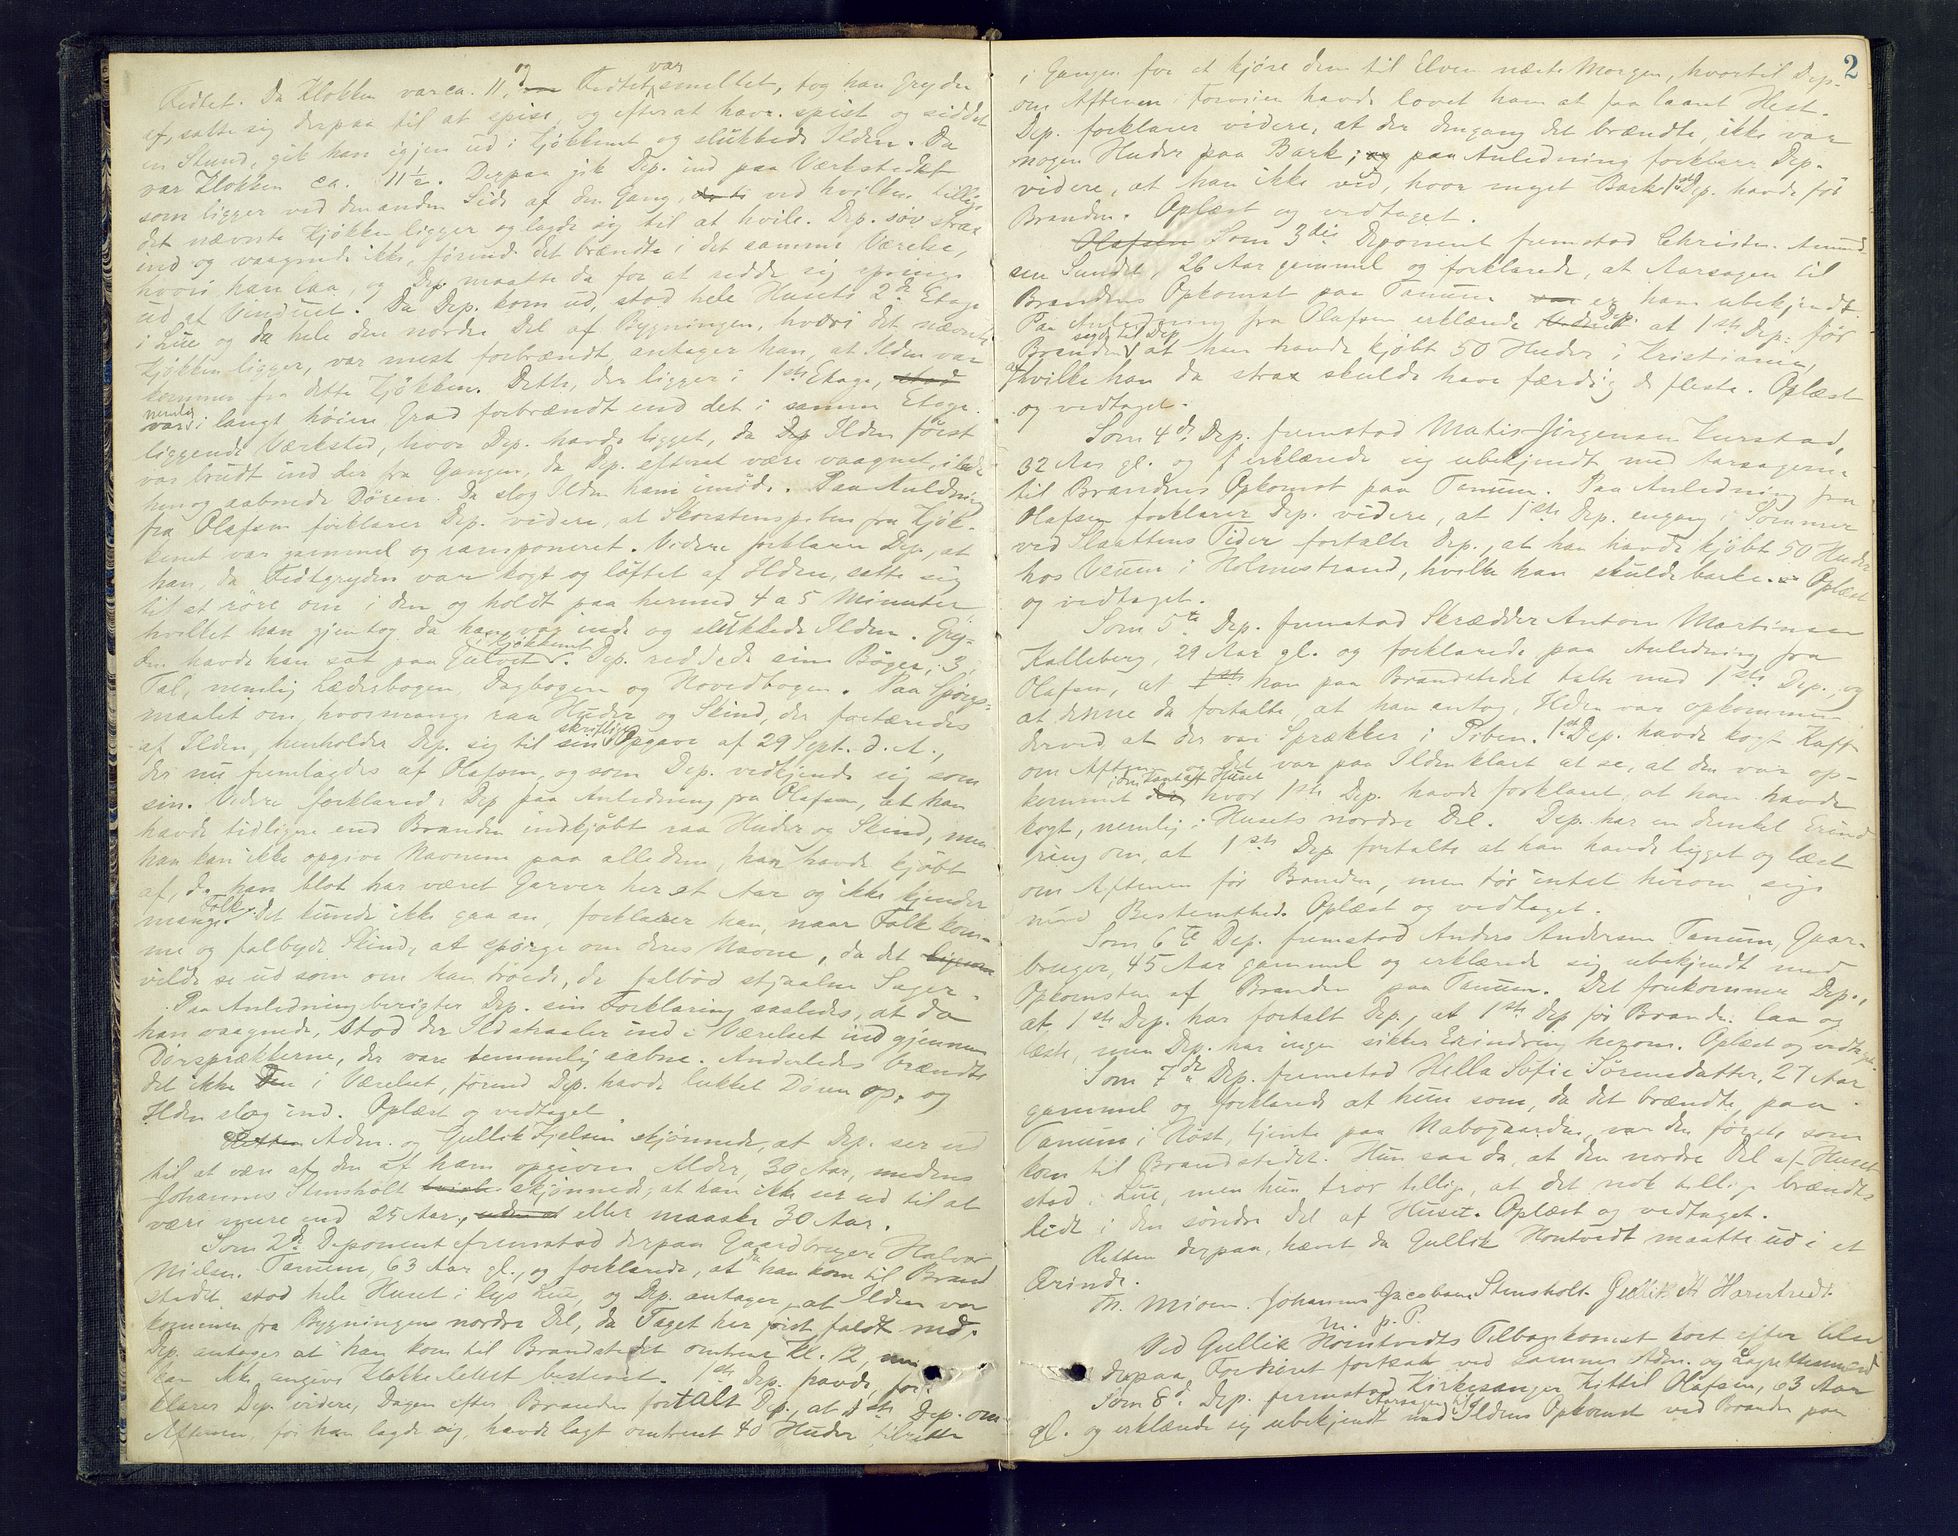 Fedtet. Da Klokken var ca. 11, og Fedtet var smeltet, tog han Gryden
af, satte sig derpaa til at spise, og efterat have spist og siddet
en Stund, gik han igjen ud i Kjøkkenet og slukkede Ilden. Da
var Klokken ca. 11½. Derpaa gik Dep. ind paa Værkstedet
som ligger ved den anden Side af den Gang, ved hvilken tillige
det nævnte Kjøkken ligger og lagde sig til at hvile. Dep. sov strax
ind og vaagnede ikke, førend det brændte i det samme Værelse,
hvori han laa, og Dep. maatte da for at redde sig springe
ud at Vinduet. Da Dep. kom ud, stod hele Husets 2den Etage
i Lue og da hele den nordre Del af Bygningen, hvori det nævnte
Kjøkken ligger, var mest forbrændt, antager han, at Ilden var
kommen fra dette Kjøkken. Dette, der ligger i 1ste Etage, stod
nemlig var i langt høiere Grad forbrændt end det i samme Etage
liggende Værksted, hvor Dep. havde ligget, da Dep Ilden først
var brudt ind der fra Gangen, da Dep. efterat være vaagnet, ilede
hen og aabnede Døren. Da slog Ilden ham imøde. Paa Anledning
fra Olafsen forklarer Dep. videre, at Skorstenspiben fra Kjøk-
kenet var gammel og ramponeret. Videre forklarer Dep., at
han, da Fedtgryden var kogt og løftet af Ilden, satte sig
til at røre om i den og holdt paa hermed 4 a 5 Minutter
hvilket han gjentog da han var inde og slukkede Ilden. Gry-
den havde han sat paa Gulvet i Kjøkkenet. Dep. reddede sine Bøger, 3 i
Tal, nemlig Læderbogen, Dagbogen og Hovedbogen. Paa Spørgs-
maalet om, hvormange raa Huder og Skind, der fortæredes
af Ilden, henholder Dep. sig til sin skriftlige Opgave af 29 Sept. d. A.,
der nu fremlagdes af Olafsen, og som Dep. vedkjendte sig som
sin. Videre forklarede Dep paa Anledning fra Olafsen, at han
havde tidligere end Branden indkjøbt raa Huder og Skind, men
han kan ikke opgive Navnene paa alle dem, han havde kjøbt
af, da han blot har været Garver her et Aar og ikke kjender
mange Folk. Det kunde ikke gaa an, forklarer han, naar Folk kom-
me og falbyde Skind, at spørge om deres Navne, da det ligesom
vilde se ud som om han troede, de falbød stjaalne Sager.
Paa Anledning berigter Dep. sin Forklaring saaledes, at da
han vaagnede, stod der Ildstraaler ind i Værelset ind gjennem
Dørsprækkerne, der vare temmelig aabne. Anderledes brændte
det ikke i Værelset, førend Dep. havde lukket Døren op, og
Ilden slog ind. Oplæst og vedtaget.
Retten Adm. og Gullik Kjelsen skjønnede, at Dep. ser ud
til at være af den af ham opgivne Alder, 30 Aar, medens
Johannes Stensholt skjønnede, at han ikke ser ud til at
være mere end 25 Aar, eller maaske 30 Aar.
Som 2d. Deponent fremstod derpaa Gaardbruger Halvor
Nielsen Tanum, 63 Aar gl., og forklarede, at da han kom til Brand
stedet stod hele Huset i lys Lue, og Dep. antager, at Ilden var
kommen fra Bygningens nordre Del, da Taget her først faldt ned.
Dep. antager at han kom til Brandstedet omtrent Kl. 12, men
kan ikke angive Klokkeslettet bestemt. 1ste Dep. havde, for-
klarer Dep. videre, Dagen efter Branden fortalt Dep., at 1ste Dep. om
Aftenen, før han lagde sig, havde lagt omtrent 40 Huder tilrette
2
i Gangen for at kjøre dem til Elven næste Morgen, hvortil Dep.
om Aftenen i Forveien havde lovet ham at faa laant Hest.
Dep. forklarer videre, at der dengang det brændte, ikke var
nogen Huder paa Bark; og paa Anledning forklarer Dep.
videre, at han ikke ved, hvor meget Bark 1ste Dep. havde før
Branden. Oplæst og vedtaget.
Olafsen Som 3die Deponent fremstod Christen Amund-
sen Sundet, 26 Aar gammel og forklarede, at Aarsagen til
Brandens Opkomst paa Tanum er ham ubekjendt.
Paa Anledning fra Olafsen erklærede Dep. at 1ste Dep. før
Branden sagde til Dep. at han havde kjøbt 50 Huder i Kristiania,
af hvilke han da strax skulde have færdig de fleste. Oplæst
og vedtaget.
Som 4de Dep. fremstod Matis Jørgensen Kurstad,
32 Aar gl. og erklærede sig ubekjendt med Aarsagerne
til Brandens Opkomst paa Tanum. Paa Anledning fra
Olafsen forklarer Dep. videre, at 1ste Dep. engang i Sommer
ved Slaattens Tider fortalte Dep., at han havde kjøbt 50 Huder
hos Veum i Holmestrand, hvilke han skulde barke. Oplæst
og vedtaget.
Som 5te Dep. fremstod Skrædder Anton Martinsen
Kalleberg, 29 Aar gl. og forklarede paa Anledning fra
Olafsen, at 1ste han paa Brandstedet talte med 1ste Dep., og
at denne da fortalte, at han antog, Ilden var opkommen
derved at der var Sprækker i Piben. 1ste Dep. havde kogt Kaffe
om Aftenen og det var paa Ilden klart at se, at den var op-
kommet i den Kant af Huset hvor 1ste Dep. havde forklaret, at han havde
kogt, nemlig i Husets nordre Del. Dep. har en dunkel Erind
ring om, at 1ste Dep fortalte at han havde ligget og læst
om Aftenen før Branden, men tør intet herom sige
med Bestemthed. Oplæst og vedtaget.
Som 6te Dep. fremstod Anders Andersen Tanum, Gaar-
bruger, 45 Aar gammel og erklærede sig ubekjendt med
Opkomsten af Branden paa Tanum. Det forekommer Dep.,
at 1ste Dep. har fortalt Dep., at 1ste Dep før Branden laa og
læste, men Dep. har ingen sikker Erindring herom. Oplæst og vedtaget.
Som 7de Dep. fremstod Hella Sofie Sørensdatter, 27 Aar
gammel og forklarede at hun som, da det brændte paa
Tanum i Høst, tjente paa Nabogaarden, var den første, som
kom til Brandstedet. Hun saa da, at den nordre Del af Huset
stod i Lue, men hun tror tillige, at det nok tillige brændte
lidt i den søndre Del af Huset. Oplæst og vedtaget.
Retten derpaa hævet da Gullik Hontvedt maatte ud i et
Ærinde.
Th. Moen. Johannes Jacobsen Stensholt. Gullik K Horntvedt.
m. p. P.
Ved Gullik Horntvedts Tilbagekomst kort efter blev
derpaa Forhøret fortsat ved samme Adm. og Lagrettesmænd
Som 8d. Dep. fremstod Kirkesanger Kittil Olafsen, 63 Aar
gl. og erklærede sig ubekjendt med Aarsagen til Ildens Opkomst ved Branden paa